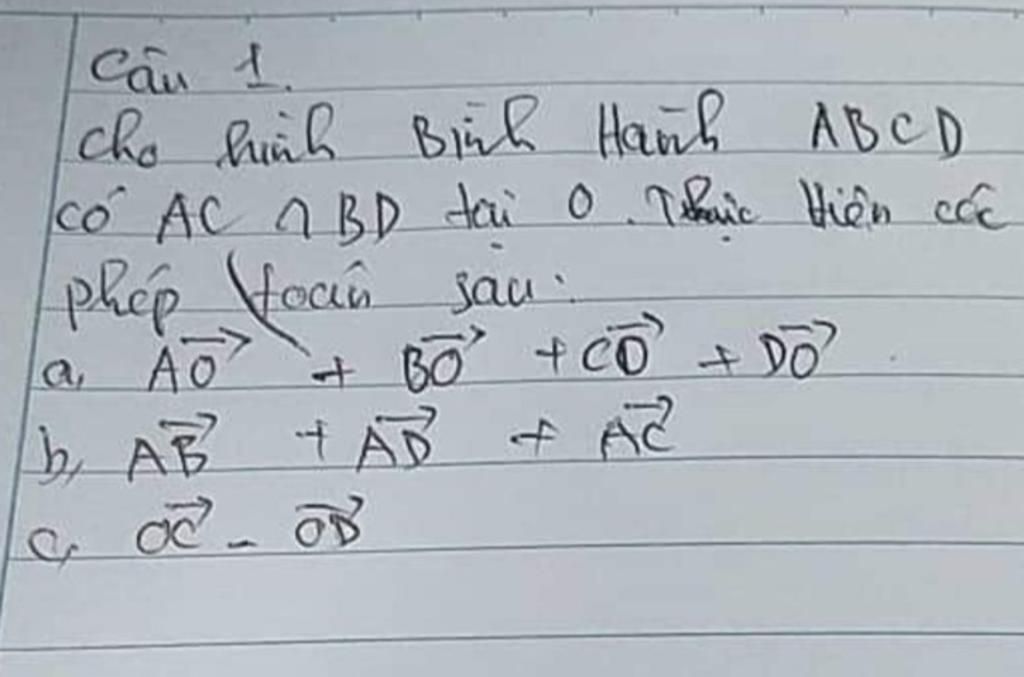 Câu 1.
Cho hình Bình Hành ABCD
có AC ∩ BD tại O. Thực Hiện các
phép toán sau:
a, AO→ + BO→ + CO→ + DO→
b, AB→ + AD→ + AC→
c, OC→ - OD→